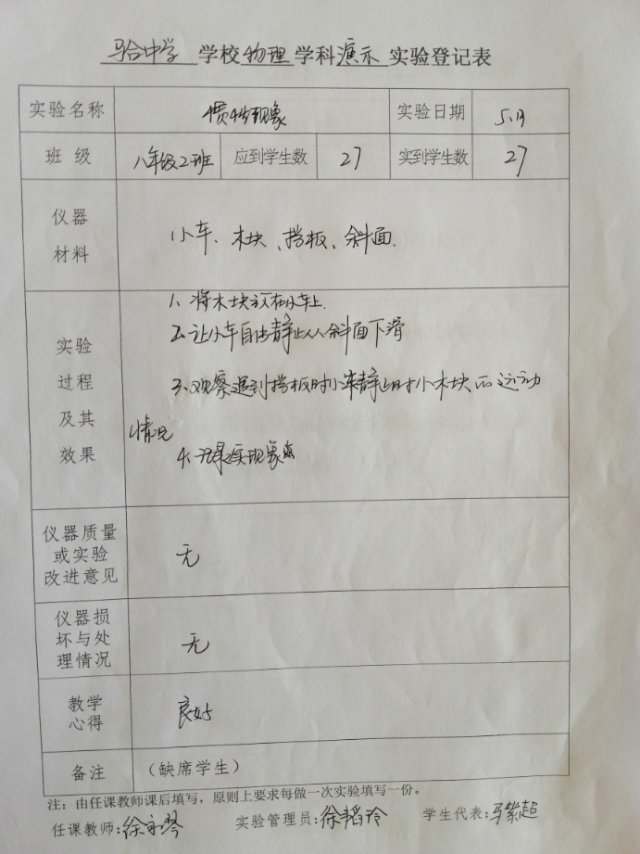 马合中学 学校 物理 学科 演示 实验登记表
实验名称 惯性现象 实验日期 5.19
班 级 八年级2班 应到学生数 27 实到学生数 27
仪器
材料
小车、木块、挡板、斜面.
实验
过程
及其
效果
1、将木块放在小车上.
2.让小车自由静止从斜面下滑
3、观察遇到挡板时小车静止时小木块的运动
情况
4、记录实现象
仪器质量
或实验
改进意见
无
仪器损
坏与处
理情况
无
教学
心得
良好
备注 (缺席学生)
注：由任课教师课后填写，原则上要求每做一次实验填写一份。
任课教师:徐 实验管理员:徐 玲 学生代表:马 超